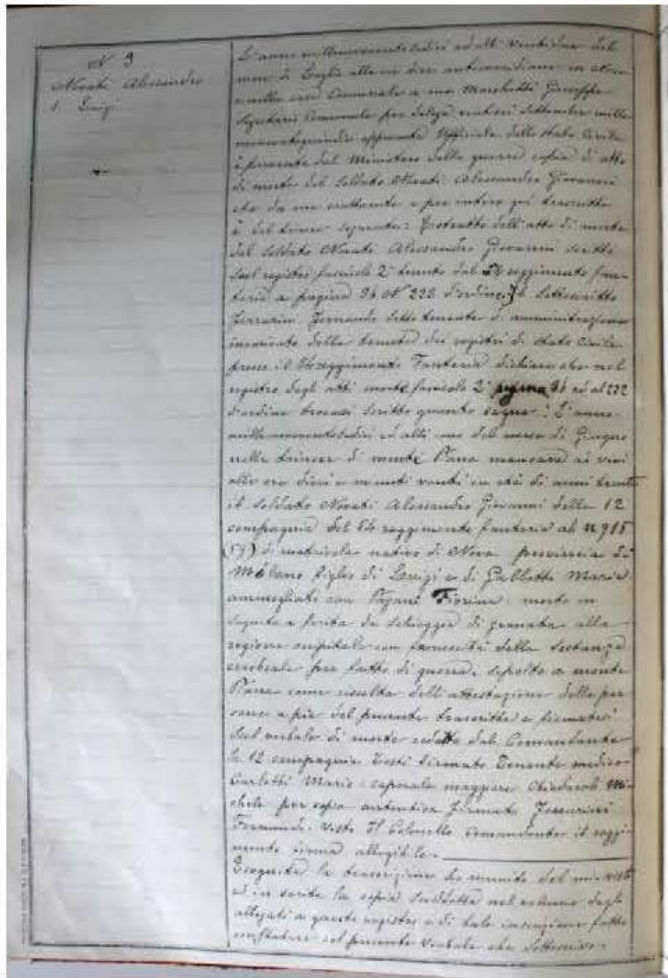 N 9
Novati Alessandro
f. Luigi
L'anno millenovecentosedici ed alli ventidue del
mese di Luglio alle ore dieci antimeridiane in
nella casa Comunale a me Marchetti Giuseppe
Segretario Comunale per delega ventisei Settembre mille
novecentoquindici approvata Ufficiale dello Stato Civile
è pervenuta dal Ministero della guerra copia di atto
di morte del soldato Novati Alessandro Giovanni
che da me esattamente e per intero qui trascritta
è del tenore seguente: Estratto dell'atto di morte
del soldato Novati Alessandro Giovanni scritto
sul registro fascicolo 2° tenuto dal 54 reggimento fan-
teria a pagina 36 N° 222 d'ordine, Il sottoscritto
Ferrarini Fernando sotto tenente d'amministrazione
incaricato della tenuta dei registri di stato Civile
presso il 54 reggimento Fanteria dichiara che nel
registro degli atti morte fascicolo 2° pagina 36 ed al 222
d'ordine trovasi scritto quanto segue: L'anno
millenovecentosedici ed alli uno del mese di Giugno
nelle trincee di monte Piana mancava ai vivi
alle ore dieci e minuti venti in età di anni trenta
il soldato Novati Alessandro Giovanni della 12
compagnia del 54 reggimento fanteria al n 915
(59) di matricola nativo di Nova provincia di
Milano figlio di Luigi e di Galletti Maria
ammogliato con Pagani Fiorina: morto in
seguito a ferita da scheggia di granata alla
regione occipitale con fuoriuscita della sostanza
cerebrale per fatto di guerra, sepolto a monte
Piana come risulta dell'attestazione delle per
sone a piè del presente trascritte e firmatesi
sul verbale di morte redatto dal Comandante
la 12 compagnia Tosti firmato Tenente medico
Carletti Mario: caporale maggiore Mi-
chele per copia autentica firmato Ferrarini
Fernando. Visto Il Colonello Comandante il reggi-
mento firma illegibile.
Eseguita la trascrizione ho munito del mio visto
ed inserita la copia suddetta nel volume degli
allegati a questo registro e di tale inserzione fatto
constatare col presente verbale che sottoscrivo.